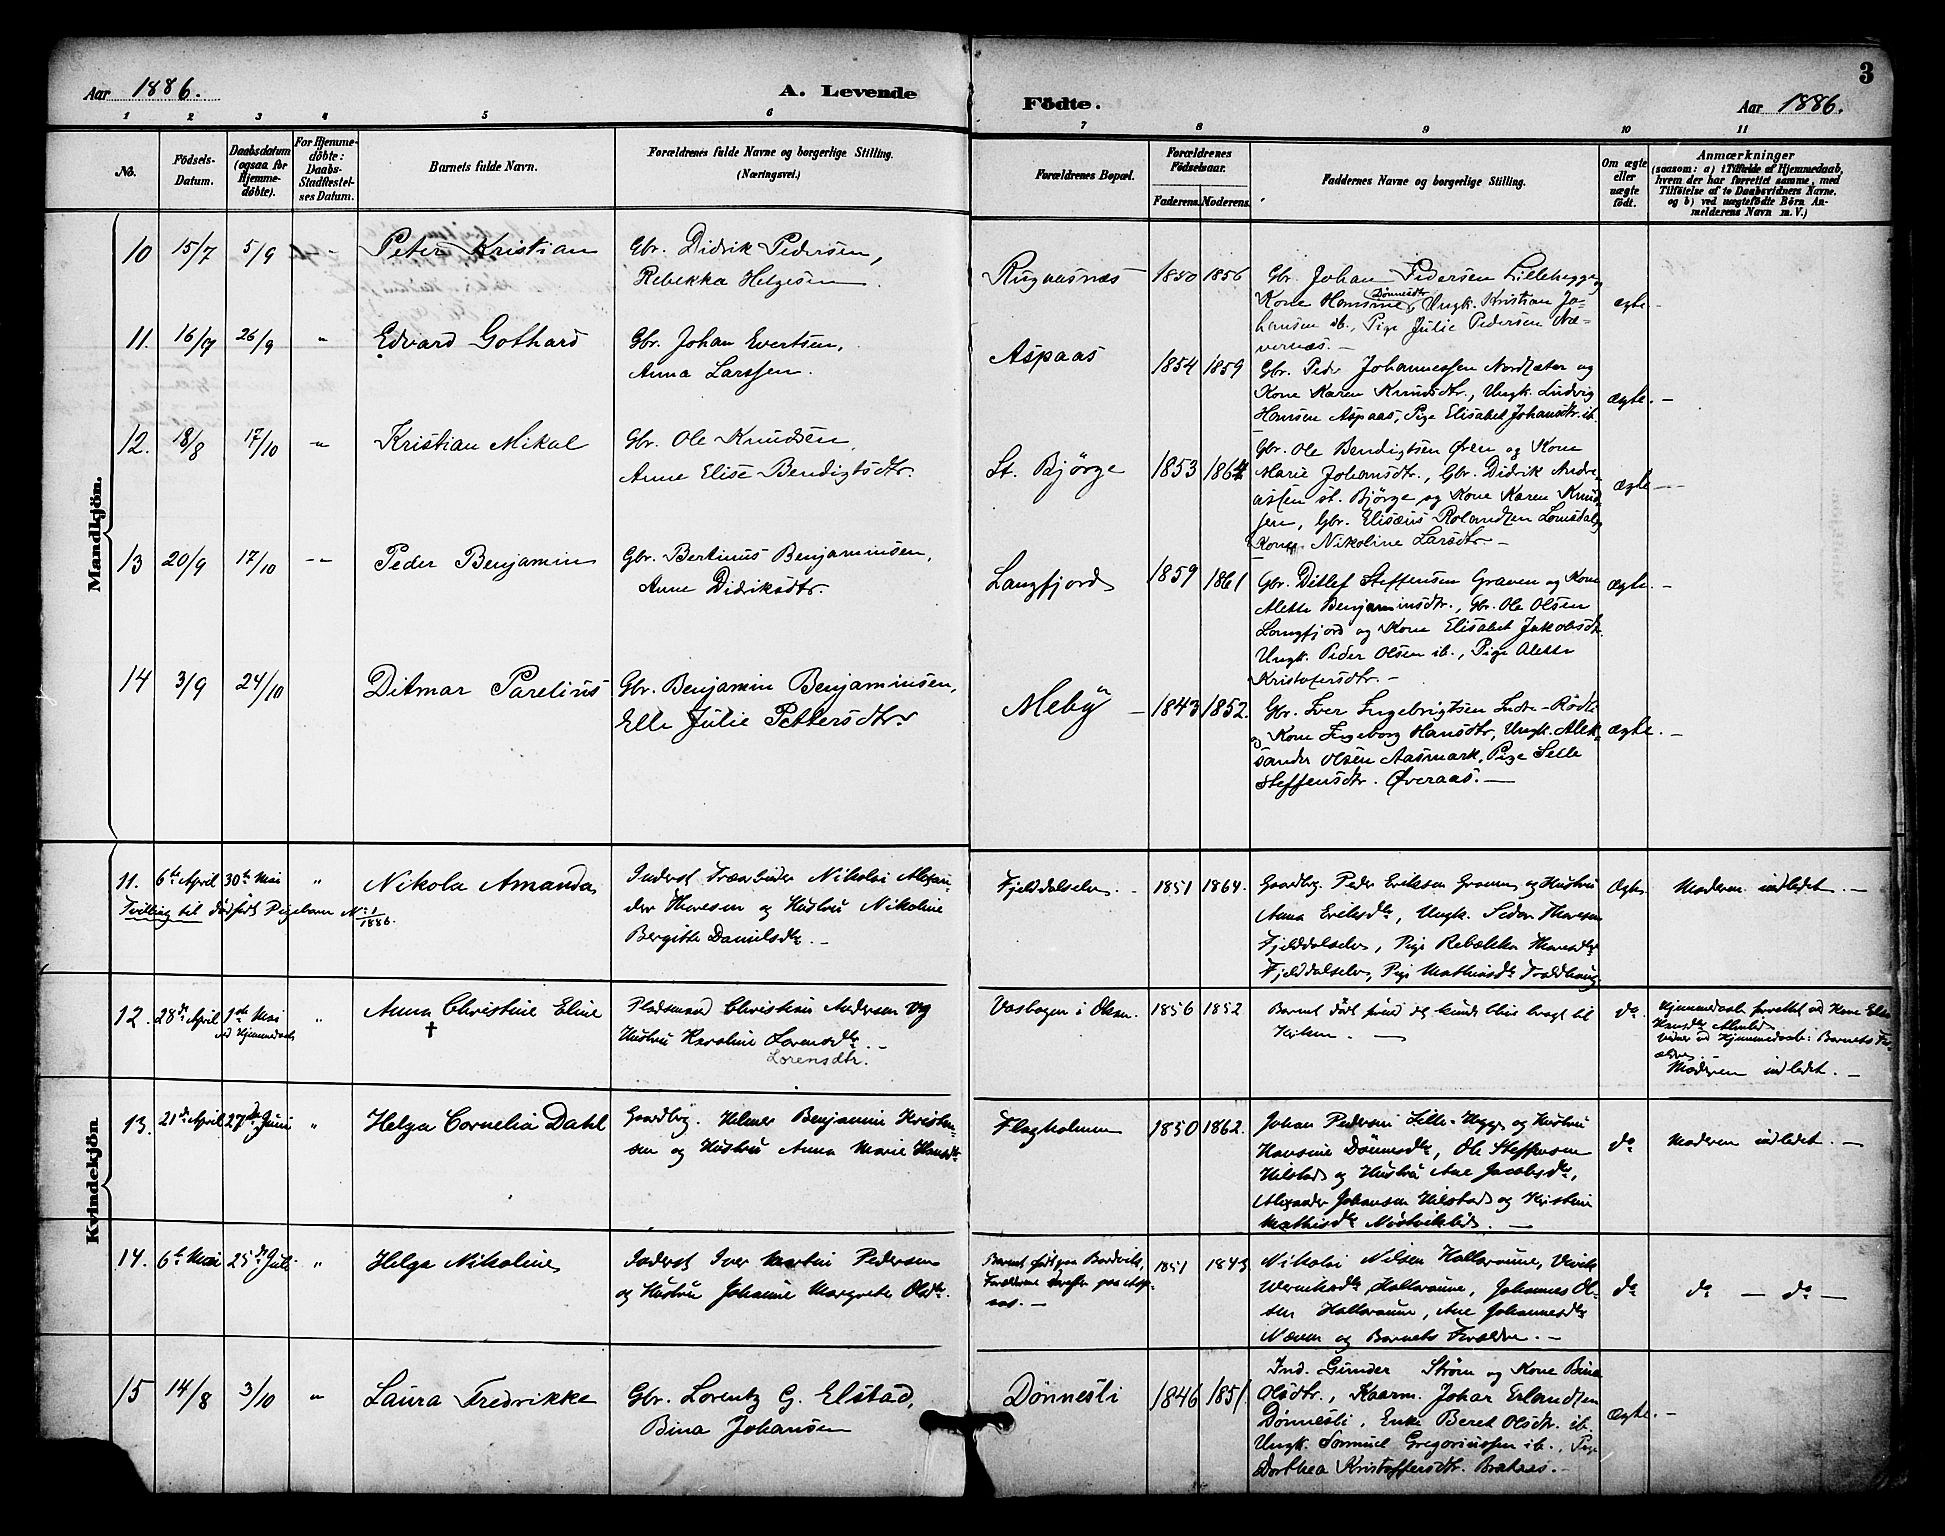 Aar 1886.
A. Levende
Födte.
Aar 1886.
3
1 2 3 4 5 6 7 8 9 10 11
No.
Födsels-
Datum.
Daabsdatum
(ogsaa for
Hjemme-
döbte).
For Hjemme-
döbte:
Daabs-
Stadfæstel-
ses Datum.
Barnets fulde Navn.
Forældrenes fulde Navne og borgerlige Stilling.
(Næringsvei.)
Forældrenes Bopæl.
Forældrenes
Födselsaar.
Faderens.
Moderens.
Faddernes Navne og borgerlige Stilling.
Om ægte
eller
uægte
födt.
Anmærkninger
(saasom: a) i Tilfælde af Hjemmedaab,
hvem der har forrettet samme, med
Tilföielse af to Daabsvidners Navne,
og b) ved uægtefödte Börn An-
melderens Navn m. V.)
Mandkjön.
10 15/7 5/9 " Peter Kristian
Gbr. Didrik Pedersen,
Rebekka Helgesen.
Rugaasnæs 1850 1856
Gbr. Johan Pedersen Lillehegge og
Kone Hansine Dønnesdtr, Ungk. Kristian Jo-
hansen ib., Pige Julie Pedersen Næ-
vernæs. —
ægte —
11. 16/7 26/9 " Edvard Gothard
Gbr. Johan Evertsen,
Anna Larssen.
Aspaas 1854 1859
Gbr. Peder Johannessen Nordsæter og
Kone Karen Knudsdtr., Ungk. Ludvig
Hansen Aspaas, Pige Elisabet Johansdtr. ib.
ægte. —
12. 18/8 17/10 " Kristian Mikal
Gbr. Ole Knudsen,
Anne Elise Bendigtsdtr.
St. Bjørge 1853 1864
Gbr. Ole Bendigtsen Øren og Kone
Marie Johansdtr., Gbr. Didrik Andre-
assen st. Bjørge og Kone Karen Knud-
sen, Gbr. Elisæus Rolandsen Lomsdal og
Kone Nikoline Larsdtr —
ægte —
13 20/9 17/10 " Peder Benjamin
Gbr. Bertinus Benjaminsen,
Anne Didriksdtr.
Langfjord 1859 1861
Gbr. Ditlef Steffensen Graven og Kone
Alette Benjaminsdtr., Gbr. Ole Olsen
Langfjord og Kone Elisabet Jakobsdtr.
Ungk. Peder Olsen ib., Pige Alette
Kristofersdtr. —
ægte. —
14 3/9 24/10 Ditmar Parelius
Gbr. Benjamin Benjaminsen,
Elle Julie Pettersdtr.
Meby — 1843 1852.
Gbr. Iver Ingebrigtsen Indre-Røds
og Kone Ingeborg Hansdtr, Ungk. Alek-
sander Olsen Aasmark, Pige Sille
Steffensdtr. Øveraas. —
ægte. —
Kvindekjön.
11. 6te April 30te Mai " Nikola Amanda
Tvilling til dødfødt Pigebarn No 1/1886.
Inderst Træarbeider Nikolai Alexan-
der Thoresen og Hustru Nikoline
Bergitte Danielsdtr. —
Fjelddalselv. — 1851 1864.
Gaardbrg. Peder Eriksen Graven og Hustru
Anna Eriksdtr, Ungk. Sedon Thoresen
Fjelddalselv, Pige Rebækka Thoresdtr
Fjelddalselv, Pige Mathiasdtr Troldhaug
Ægte Moderen indledet. —
12. 28de April 1ste Mai " Anna Christine Eline
ved Hjemmedaab
†
Pladsmand Christian Andersen og
Hustru Karoline Lorensdtr. —
Lorensdtr.
Vasbogen i Olsen. 1856 1852
Barnet døde førend det kunde blive bragt til
Kirken. —
do. Hjemmedaab forrettet ved Kone Elen
Hansdtr Almlid
Vidner ved Hjemmedaab: Barnets For-
ældre. —
Moderen indledet. —
13. 21de April 27de Juni " Helga Cornelia Dahl
Gaardbrg. Helmer Benjamin Kristen-
sen og Hustru Anna Marie Hansdtr
Flagholmen 1850 1862.
Johan Pedersen Lille-Hegge og Hustru
Hansine Dønnesdtr, Ole Steffensen
Hilstad og Hustru Ane Jacobsdtr,
Alexander Johansen Hilstad og Kristine
Mathisdtr Nostviklid. —
do Moderen indledet. —
14. 6te Mai 25de Juli " Helga Nikoline
Inderst Iver Martin Pedersen
og Hustru Johanne Margrete Olsdtr.
Barnet født paa Bardviks,
Forældrene træffes paa Asp-
aas. —
1851 1843
Nikolai Nilsen Hallaraune, Ulrik
Wernersdtr, Hallaraune, Johannes Ol-
sen Hallaraune, Ane Johannesdtr
Næven og Barnets Forældre. —
do do — do —
15 14/8 3/10 " Laura Fredrikke
Gbr. Lorentz G. Elstad,
Bina Johansen
Dønnesli 1846 1851.
Ind. Gunder Strøm og Kone Bina
Olsdtr., Kaarm. Johar Erlandsen
Dønnesli, Enke Beret Olsdtr. ib.
Ungk. Samuel Gregoriussen ib., Pige
Dorthea Kristoffersdtr. Brataas. —
ægte. —